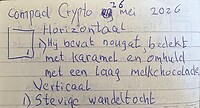 Compad Crypto 26 mei 2026
Horizontaal
1) Hij bevat nougat, bedekt
met karamel en omhuld
met een laag melkchocolade
Verticaal
1) Stevige wandeltocht